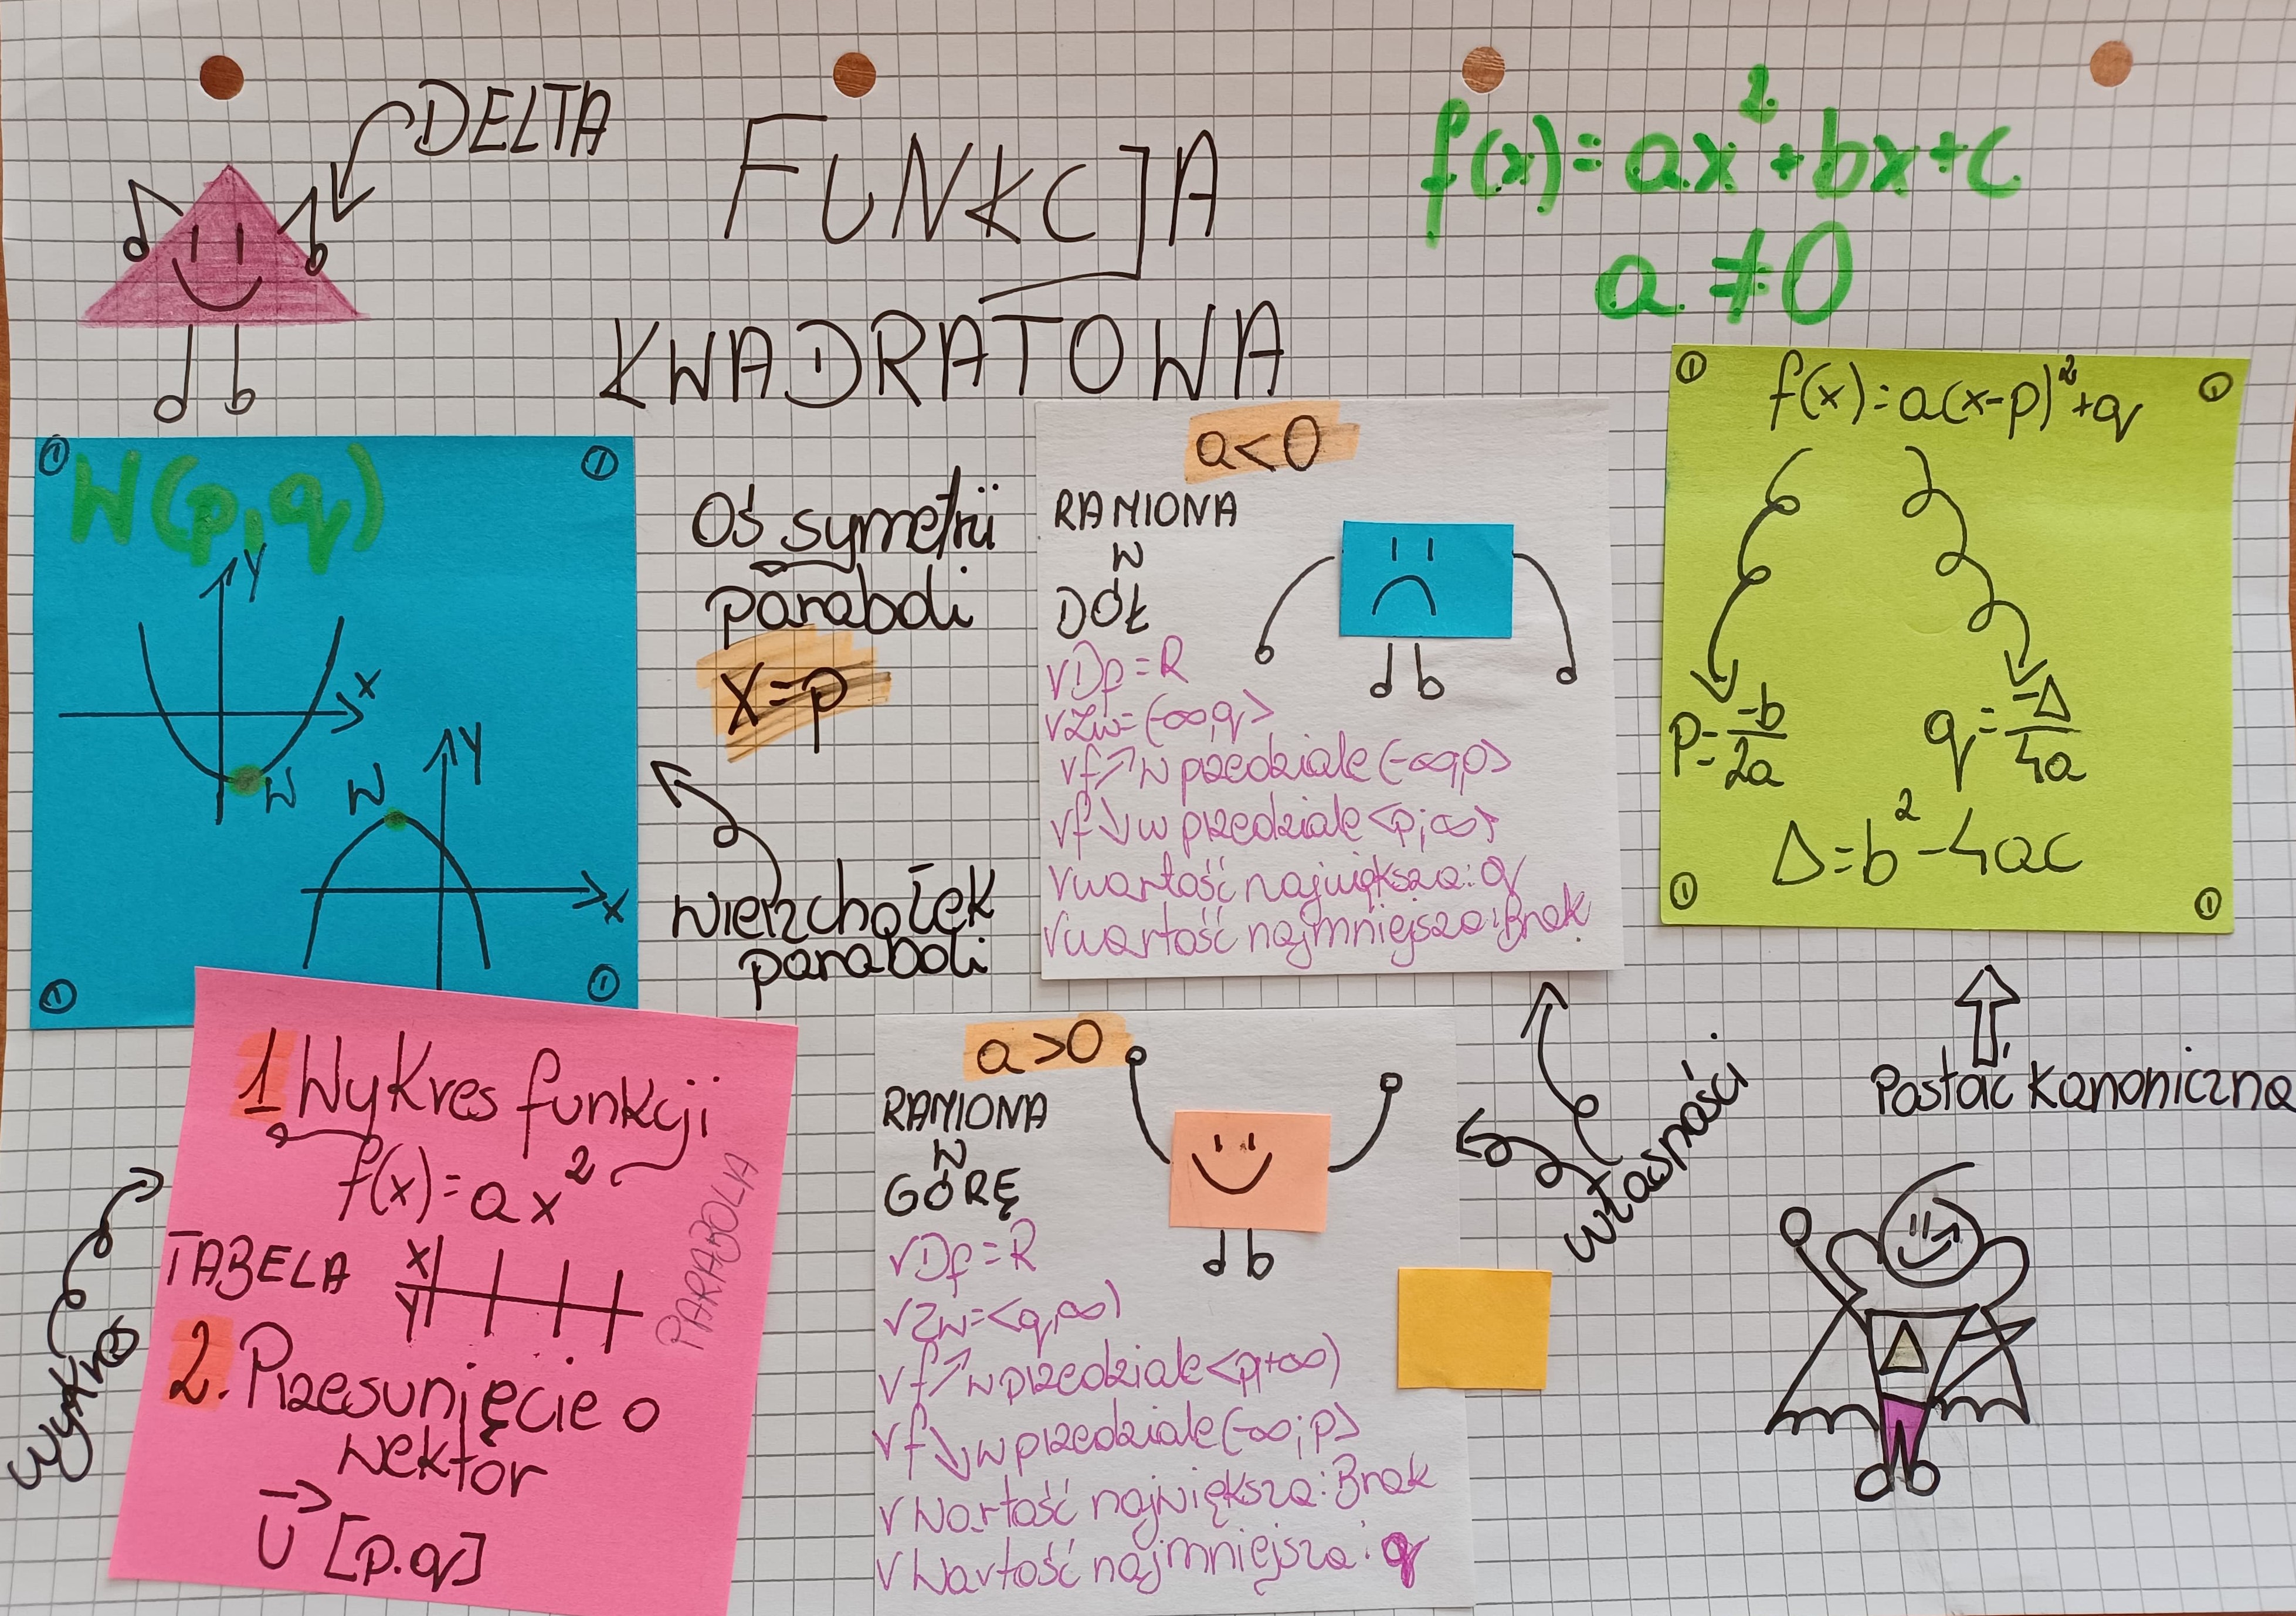 DELTA
FUNKCJA
KWADRATOWA
f(x)=ax²+bx+c
a≠0
W(p,q)
Y
X
W
Y
W
X
Oś symetrii
paraboli
X=p
wierzchołek
paraboli
a<0
RAMIONA
W
DÓŁ
√Df=R
√Zw=(-∞,q>
√f↗w przedziale(-∞,p>
√f↘w przedziale<p;∞)
√wartość największa:q
√wartość najmniejsza:Brak
f(x)=a(x-p)²+q
p=-b/2a
q=-Δ/4a
Δ=b²-4ac
Postać kanoniczna
Δ
własności
a>0
RAMIONA
W
GÓRĘ
√Df=R
√Zw=<q,∞)
√f↗w przedziale<p,+∞)
√f↘w przedziale(-∞;p>
√Wartość największa:Brak
√Wartość najmniejsza:q
wykres
1 Wykres funkcji
f(x)=ax²
PARABOLA
TABELA
X
Y
2. Przesunięcie o
wektor
U→ [p.q]